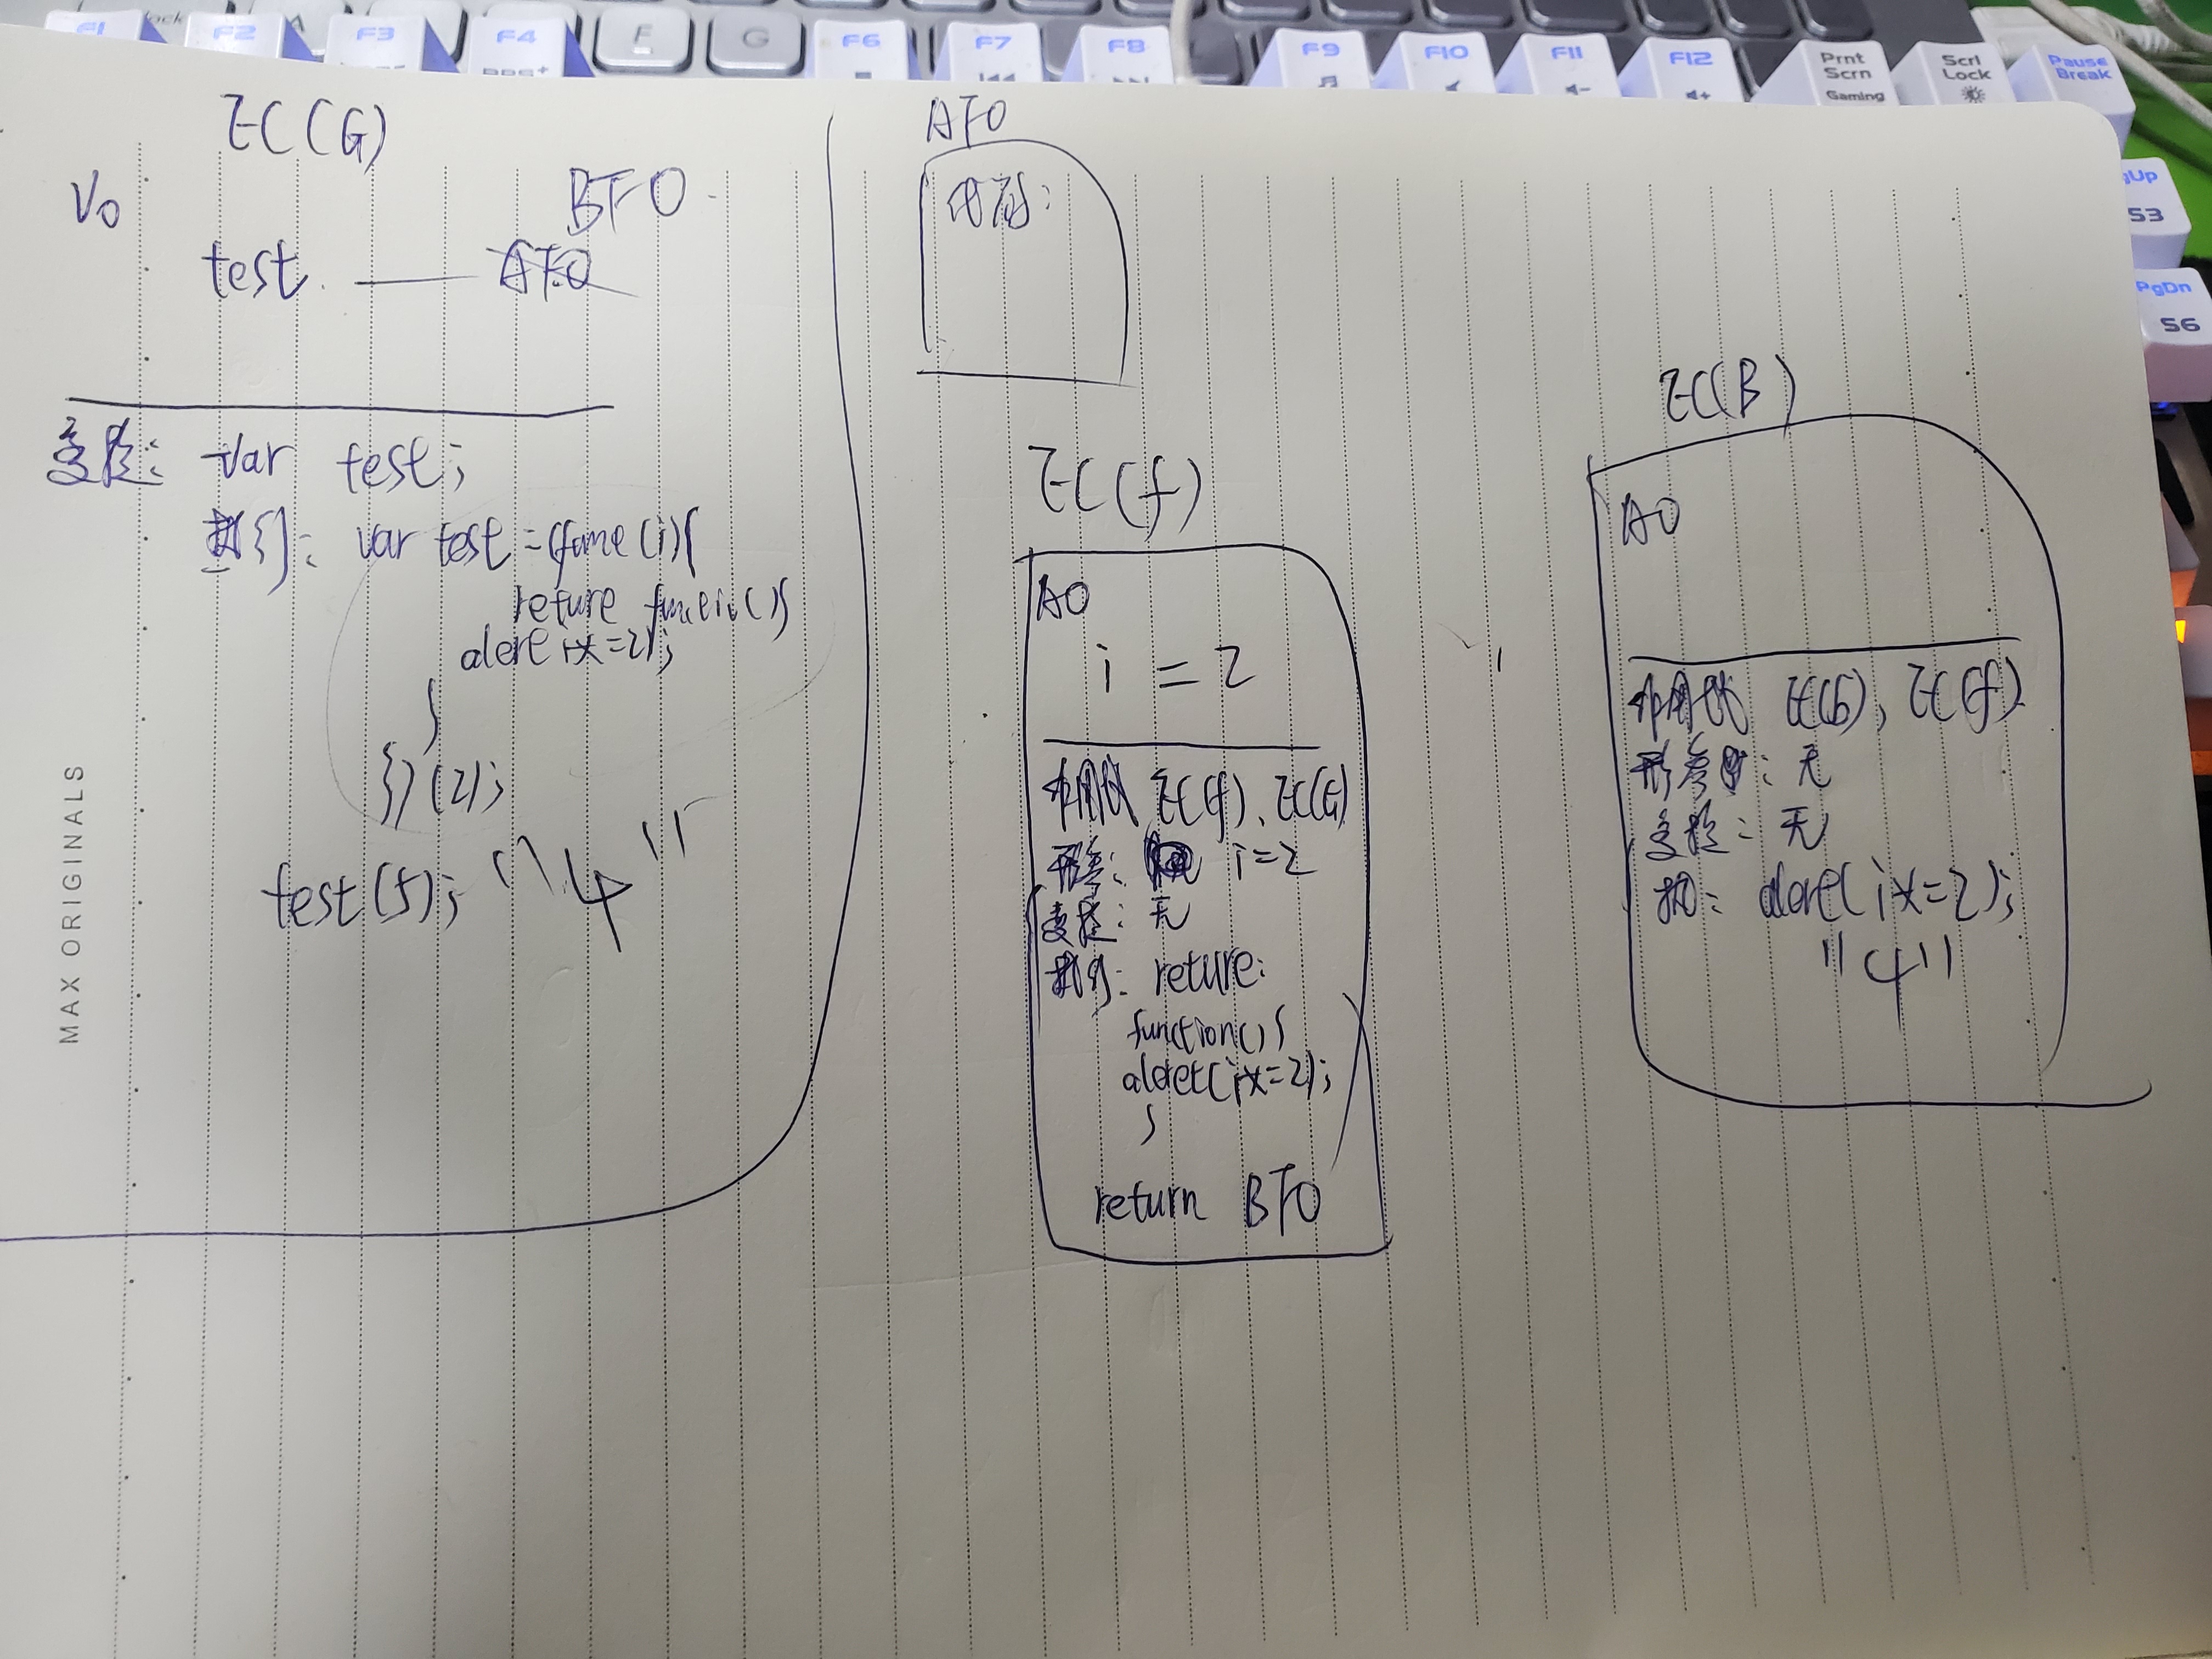 F1
F2
F3
F4
E
G
F6
F7
F8
F9
F10
F11
F12
Prnt
Scrn
Gaming
Scrl
Lock
Pause
Break
53
PgDn
56
EC(G)
VO
BFO
test
AFO
变提: var test;
var test =(
alere i*=2);
}
})(2);
test(5); "4"
MAX ORIGINALS
AFO
EC(f)
AO
i = 2
作用域 EC(f)、EC(G)
形参: i=2
变提: 无
执行: reture:
function(){
aleret(i*=2);
}
return BFO
EC(B)
AO
作用域 EC(B), EC(f)
形参: 无
变提: 无
alere(i*=2);
"4"